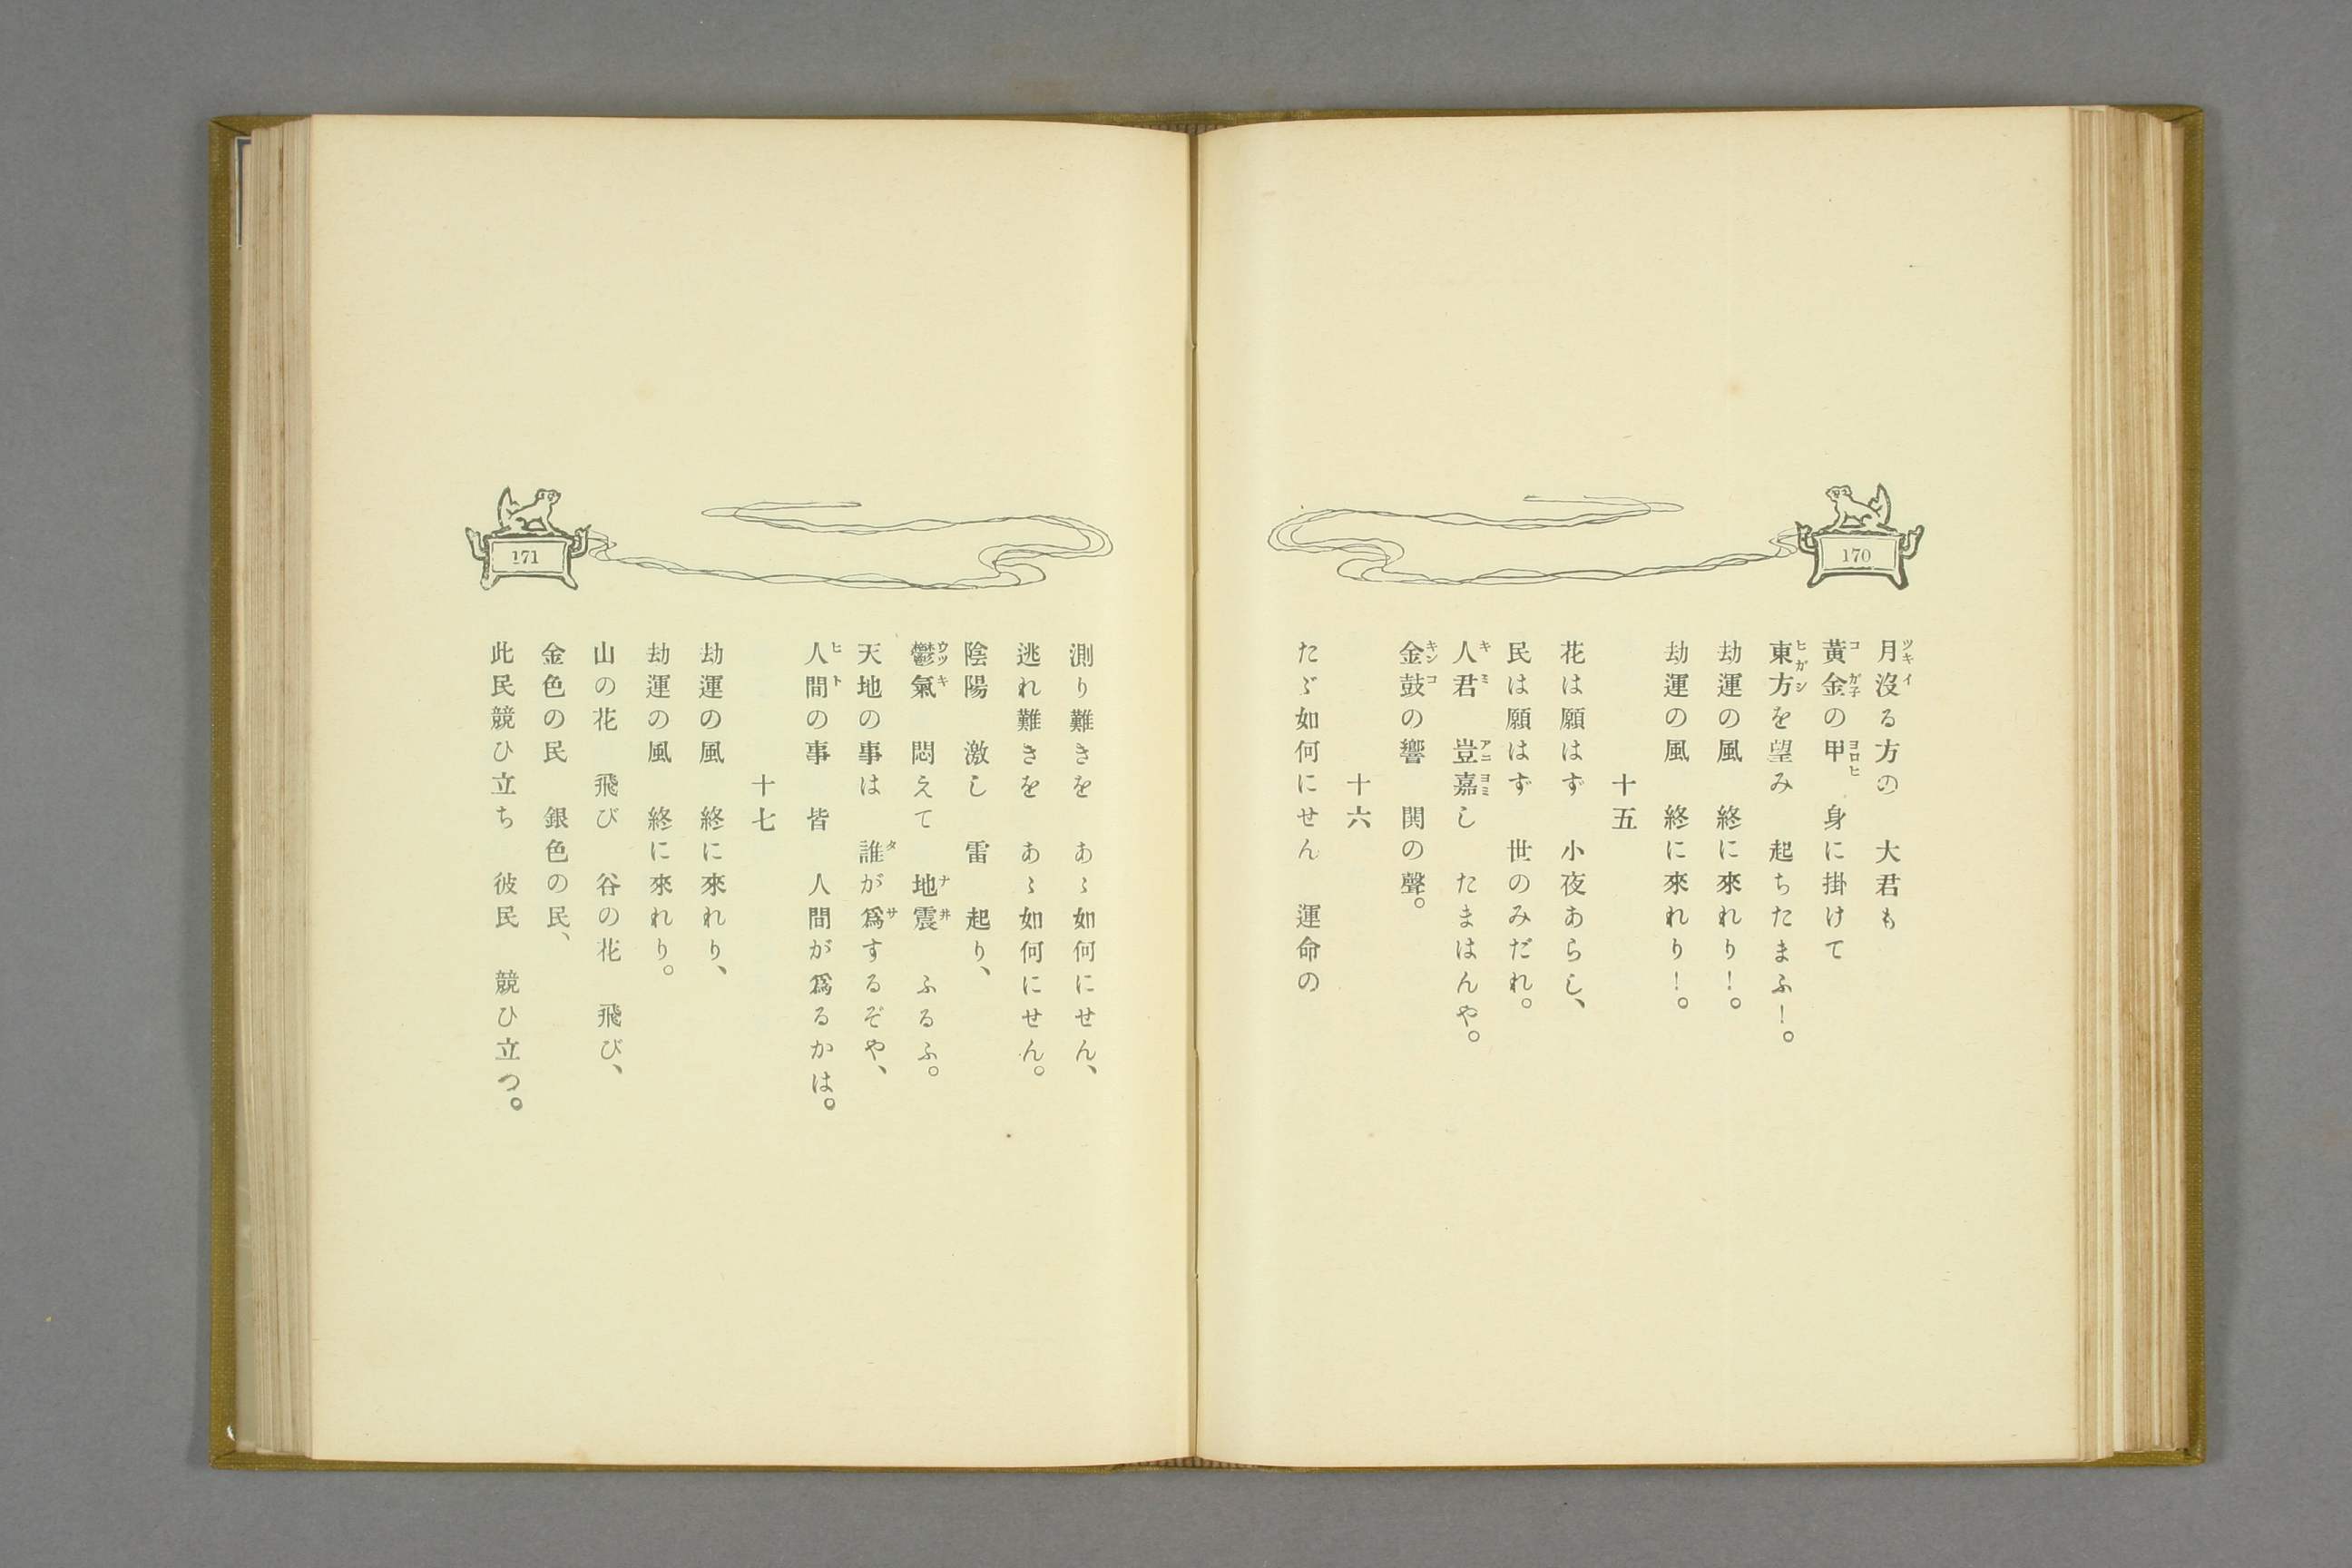 170
月沒る方の　大君も
黃金の甲　身に掛けて
東方を望み　起ちたまふ！。
劫運の風　終に來れり！。
劫運の風　終に來れり！。
十五
花は願はず　小夜あらし、
民は願はず　世のみだれ。
人君　豈嘉し　たまはんや。
金鼓の響　関の聲。
十六
たゞ如何にせん　運命の
171
測り難きを　あゝ如何にせん、
逃れ難きを　あゝ如何にせん。
陰陽　激し　雷　起り、
鬱氣　悶えて　地震　ふるふ。
天地の事は　誰が爲するぞや、
人間の事　皆　人間が爲るかは。
十七
劫運の風　終に來れり、
劫運の風　終に來れり。
山の花　飛び　谷の花　飛び、
金色の民　銀色の民、
此民競ひ立ち　彼民　競ひ立つ。